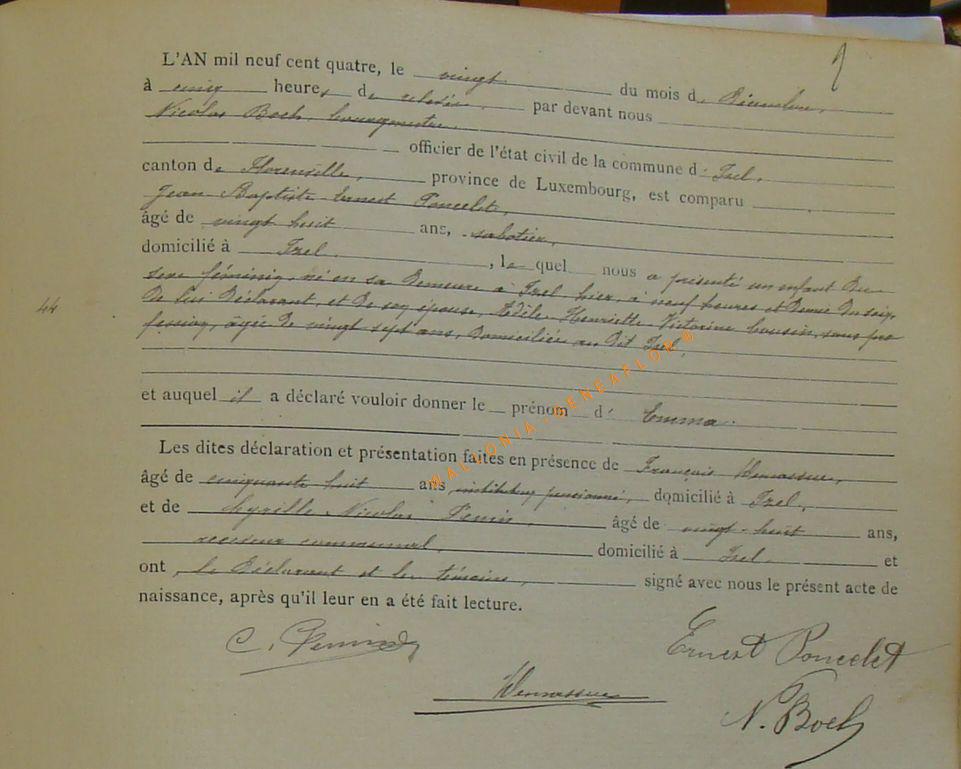 L'AN mil neuf cent quatre, le vingt du mois de Décembre,
à cinq heures de relevée, par devant nous
Nicolas Boch, bourgmestre,
officier de l'état civil de la commune d'Izel,
canton de Florenville, province de Luxembourg, est comparu
Jean Baptiste Ernest Poncelet,
âgé de vingt huit ans, sabotier,
domicilié à Izel, lequel nous a présenté un enfant du
sexe féminin, né en sa demeure à Izel hier, à neuf heures et demie du soir,
44
de lui déclarant, et de son épouse, Adèle Henriette Victorine Cousin, sans pro
fession, âgée de vingt sept ans, domiciliée au dit Izel,
et auquel il a déclaré vouloir donner le prénom d'Emma.
Les dites déclaration et présentation faites en présence de François
âgé de cinquante huit ans, instituteur pensionné, domicilié à Izel,
et de Cyrille Nicolas âgé de vingt-huit ans,
receveur communal, domicilié à Izel et
ont, le déclarant et les témoins, signé avec nous le présent acte de
naissance, après qu'il leur en a été fait lecture.
C.
Ernest Poncelet
N. Boch
WALLONIA-GENEAFLOR ©